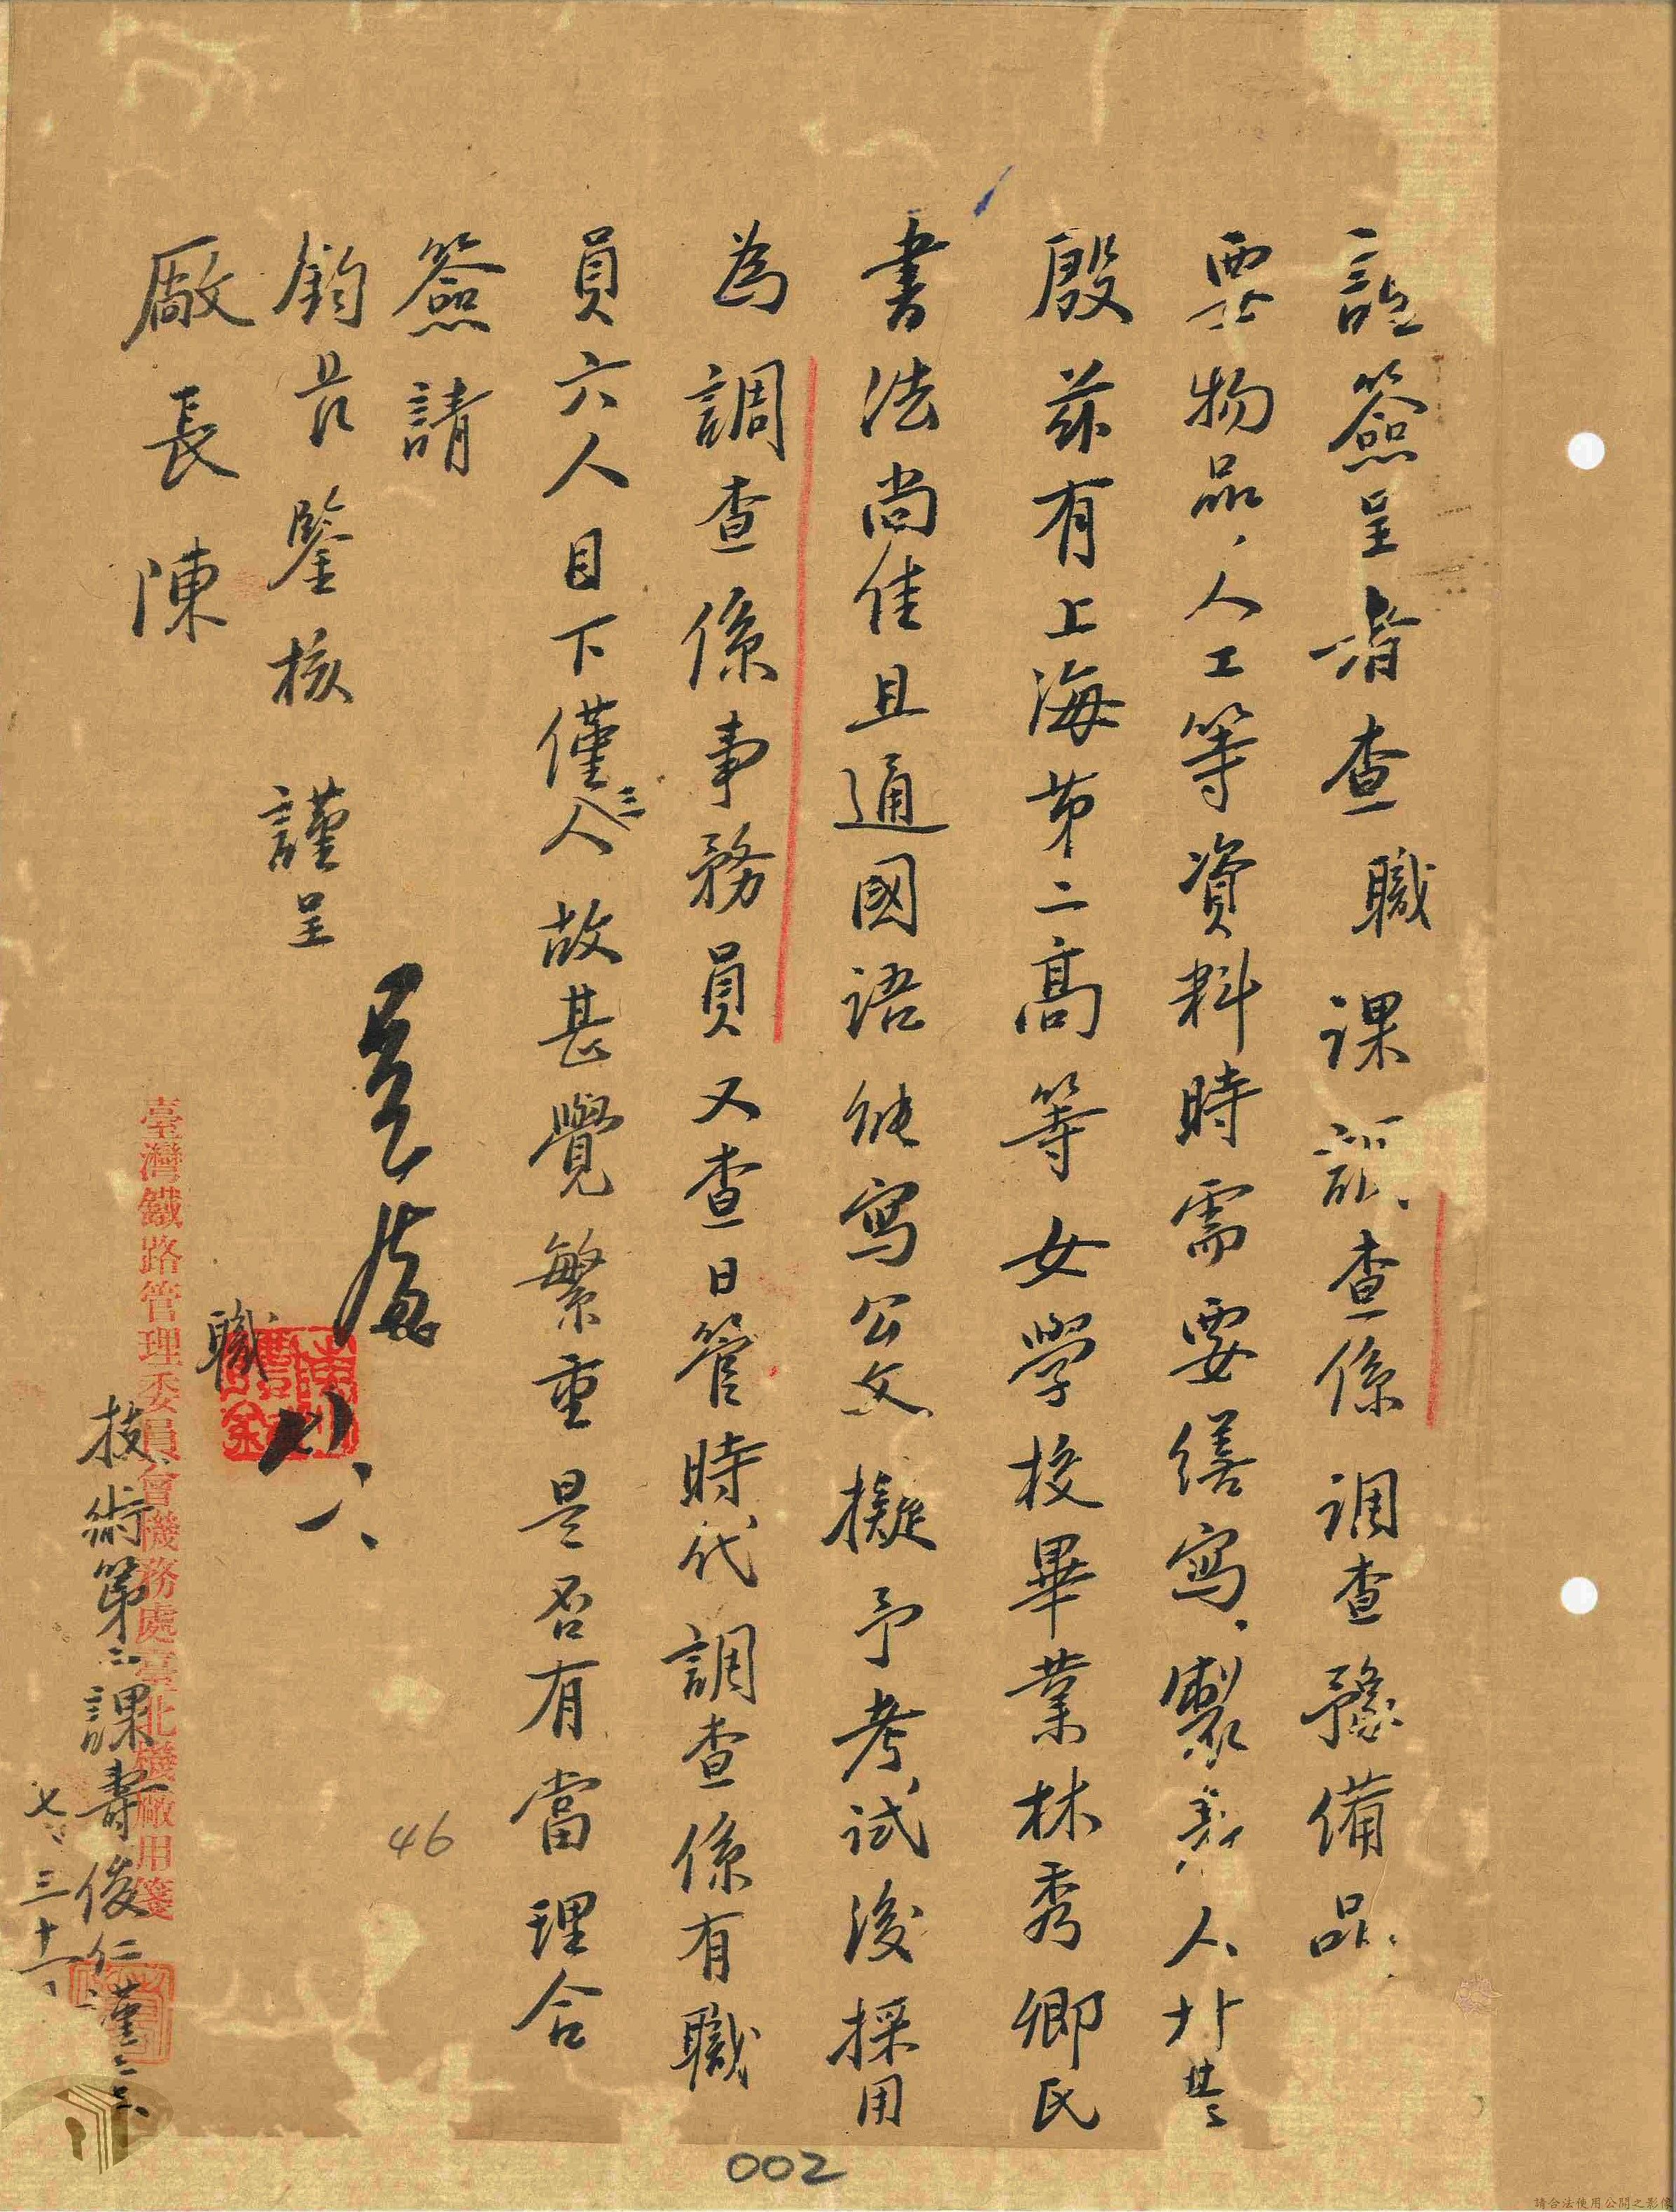 謹簽呈者查職課調查係調查豫備品
要物品、人工等資料時需要繕寫、製 人、才 甚
殷茲有上海第二高等女學校畢業林秀卿氏
書法尚佳且通國語能寫公文擬予考試後採用
為調查係事務員又查日管時代調查係有職
員六人目下僅三人故甚覺繁重是否有當理合
簽請
鈞長鑒核 謹呈
廠長陳
職
技術第二課壽俊仁謹呈
七、三十一、
八、一、
臺灣鐵路管理委員會機務處臺北機廠用箋
46
002
請合法使用公開之影像